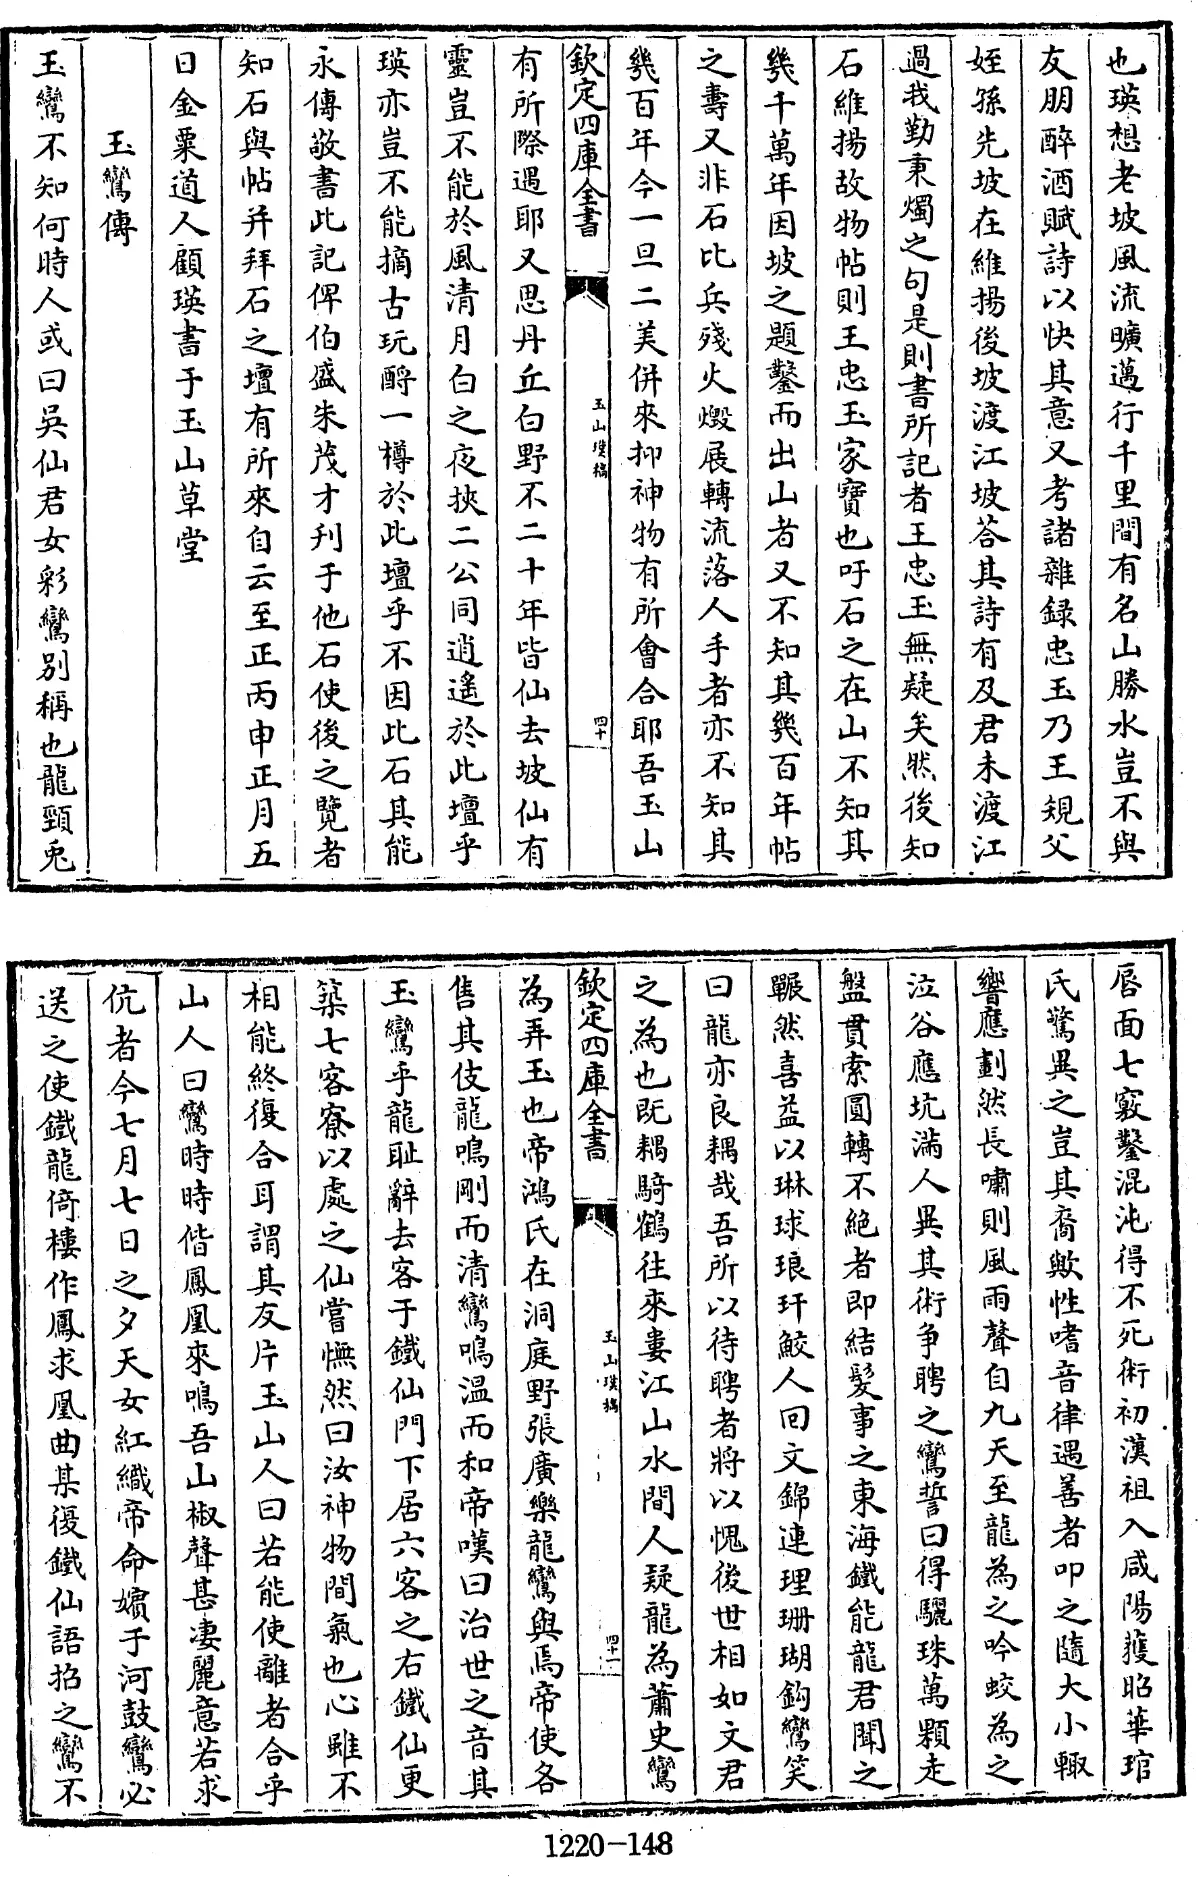 也瑛想老坡風流曠邁行千里間有名山勝水豈不與
友朋醉酒賦詩以快其意又考諸雜録忠玉乃王規父
姪孫先坡在維揚後坡渡江坡荅其詩有及君未渡江
過我勤秉燭之句是則書所記者王忠玉無疑矣然後知
石維揚故物帖則王忠玉家寶也吁石之在山不知其
幾千萬年因坡之題鑿而出山者又不知其幾百年帖
之壽又非石比兵殘火燬展轉流落人手者亦不知其
幾百年今一旦二美併來抑神物有所會合耶吾玉山
欽定四庫全書
玉山璞稿
四十
有所際遇耶又思丹丘白野不二十年皆仙去坡仙有
靈豈不能於風清月白之夜挾二公同逍遙於此壇乎
瑛亦豈不能摘古玩酹一樽於此壇乎不因此石其能
永傳敬書此記俾伯盛朱茂才刋于他石使後之覽者
知石與帖并拜石之壇有所來自云至正丙申正月五
日金粟道人顧瑛書于玉山草堂
玉鸞傳
玉鸞不知何時人或曰吳仙君女彩鸞别稱也龍頸兎
唇面七竅鑿混沌得不死術初漢祖入咸陽獲昭華琯
氏驚異之豈其裔歟性嗜音律遇善者叩之隨大小輙
響應劃然長嘯則風雨聲自九天至龍為之吟蛟為之
泣谷應坑滿人異其術争聘之鸞誓曰得驪珠萬顆走
盤貫索圓轉不絶者即結髮事之東海鐵能龍君聞之
囅然喜益以琳球琅玕鮫人囘文錦連理珊瑚鈎鸞笑
曰龍亦良耦哉吾所以待聘者將以愧後世相如文君
之為也既耦騎鶴往來婁江山水間人疑龍為蕭史鸞
欽定四庫全書
玉山璞稿
四十一
為弄玉也帝鴻氏在洞庭野張廣樂龍鸞與焉帝使各
售其伎龍鳴剛而清鸞鳴溫而和帝嘆曰治世之音其
玉鸞乎龍耻辭去客于鐵仙門下居六客之右鐵仙更
築七客寮以處之仙嘗憮然曰汝神物間氣也心雖不
相能終復合耳謂其友片玉山人曰若能使離者合乎
山人曰鸞時時偕鳳凰來鳴吾山椒聲甚凄麗意若求
伉者今七月七日之夕天女紅織帝命嬪于河鼓鸞必
送之使鐵龍倚樓作鳳求凰曲某復鐵仙語招之鸞不
1220-148